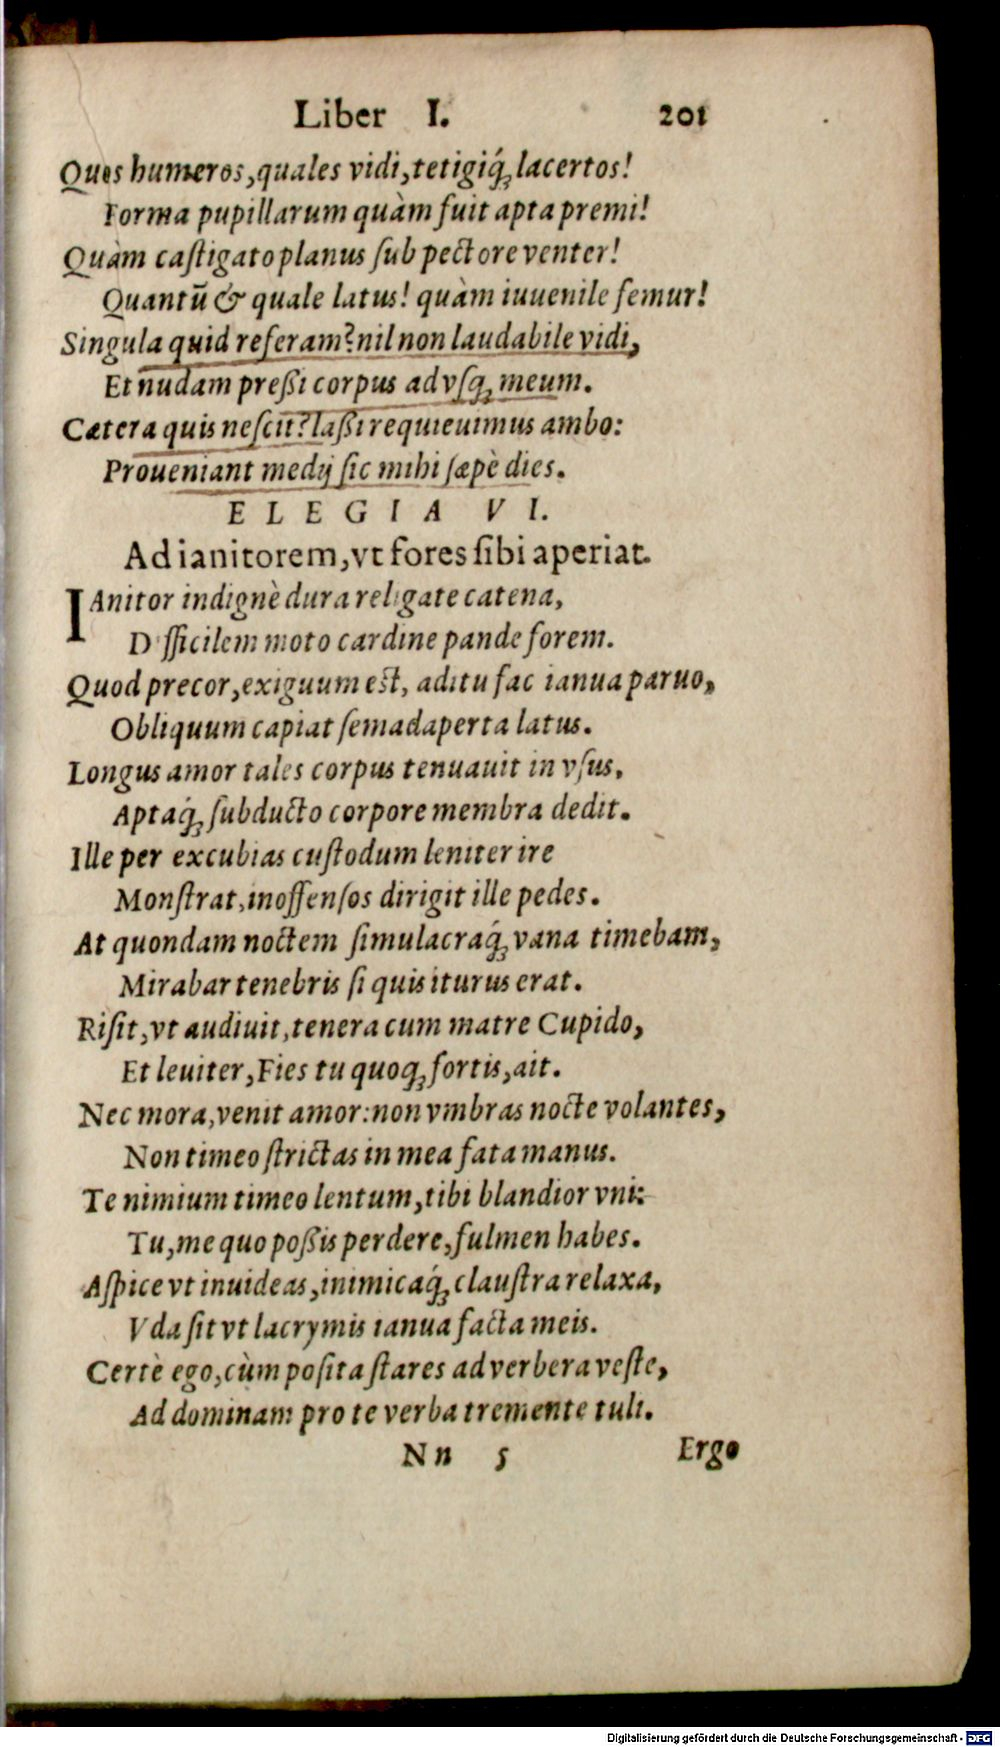 Liber I. 201
Quos humeros, quales vidi, tetigiq́; lacertos!
Forma pupillarum quàm fuit apta premi!
Quàm castigato planus sub pectore venter!
Quantū & quale latus! quàm iuuenile femur!
Singula quid referam? nil non laudabile vidi,
Et nudam preßi corpus ad vsq; meum.
Cætera quis nescit? laßi requieuimus ambo:
Proueniant medij sic mihi sæpè dies.
ELEGIA VI.
Ad ianitorem, vt fores sibi aperiat.
IAnitor indignè dura religate catena,
Difficilem moto cardine pande forem.
Quod precor, exiguum est, aditu fac ianua paruo,
Obliquum capiat semadaperta latus.
Longus amor tales corpus tenuauit in vsus,
Aptaq́; subducto corpore membra dedit.
Ille per excubias custodum leniter ire
Monstrat, inoffensos dirigit ille pedes.
At quondam noctem simulacraq́; vana timebam,
Mirabar tenebris si quis iturus erat.
Risit, vt audiuit, tenera cum matre Cupido,
Et leuiter, Fies tu quoq; fortis, ait.
Nec mora, venit amor: non vmbras nocte volantes,
Non timeo strictas in mea fata manus.
Te nimium timeo lentum, tibi blandior vni:
Tu, me quo poßis perdere, fulmen habes.
Aspice vt inuideas, inimicaq́; claustra relaxa,
Vda sit vt lacrymis ianua facta meis.
Certè ego, cùm posita stares ad verbera veste,
Ad dominam pro te verba tremente tuli.
Nn 5 Ergo
Digitalisierung gefördert durch die Deutsche Forschungsgemeinschaft - DFG